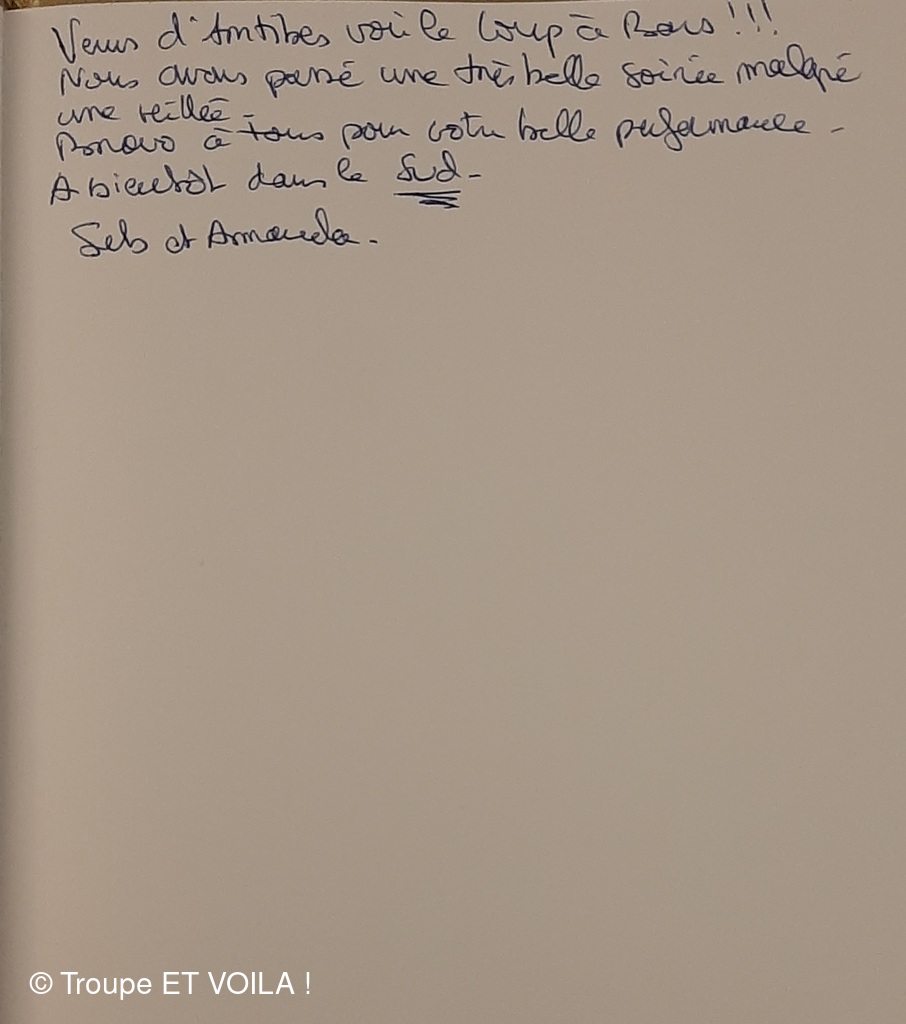 Venus d'Antibes voir le Loup à Bars !!!
Nous avons passé une très belle soirée malgré
une veillée -
Bravo à tous pour votre belle performance -
A bientôt dans le Sud -
Seb et Amanda.
© Troupe ET VOILA !